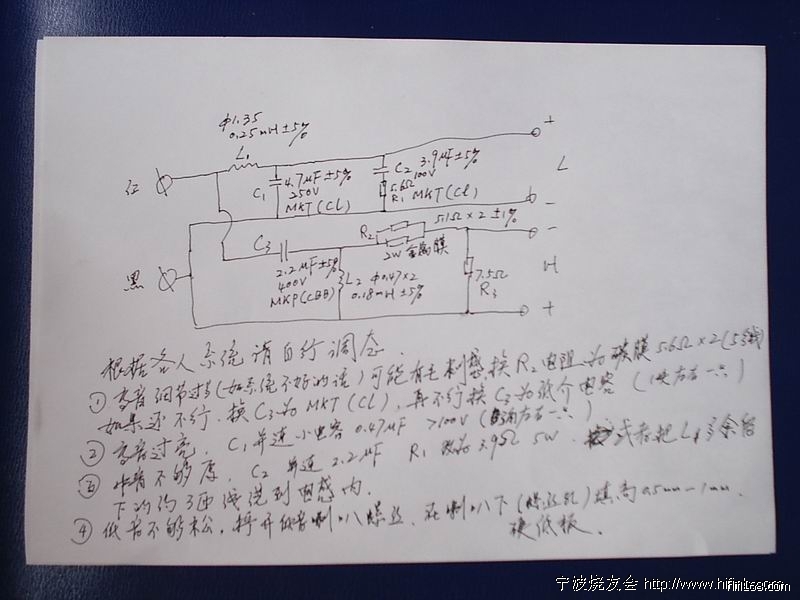 φ1.35
0.25mH±5%
L1
红
4.7μF±5%
250V
C1
MKT(Cl)
C2 3.9μF±5%
100V
5.6Ω
R1 MKT(Cl)
+
L
−
5.1Ω×2 ±1%
R2
2W 金属膜
−
黑
C3
2.2μF±5%
400V
MKP(CBB)
L2 φ0.47×2
0.18mH±5%
7.5Ω
R3
H
+
根据各人系统请自行调态.
①高音细节过多(如系统不好的话)可能有毛刺感换R2电阻为碳膜5.6Ω×2(5
如果还不行.换C3为MKT(Cl),再不行换C3为纸介电容(1块左右一只)
②高音过亮,C1并连小电容0.47μF >100V(左右一只)
③中音不够厚,C2并连2.2μF R1改为3.9Ω 5W.或者把L1多余留
下的约3厘线绕到电感内.
④低音不够松,拧开低音喇叭螺丝.在喇叭下(螺丝孔)填高0.5mm-1mm.
硬低板.
宁波烧友会 http://www.hifinb.com
HIFI168.com